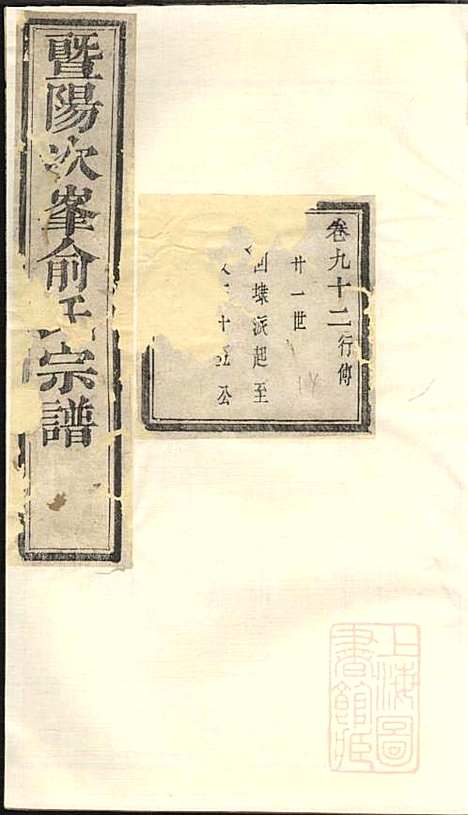 暨陽次峯俞氏宗譜
卷九十二行傳
廿一世
派起至
十 公
上海圖
書館藏